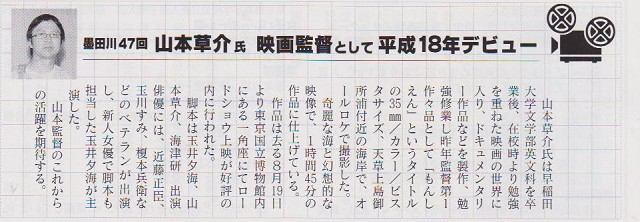 墨田川47回 山本草介氏 映画監督として平成18年デビュー
山本草介氏は早稲田
大学文学部英文科を卒
業後、在校時より勉強
を重ねた映画の世界に
入り、ドキュメンタリ
ー作品などを製作、勉
強修業し昨年監督第1
作々品として「もんし
えん」というタイトル
の35㎜／カラー／ビス
タサイズ、天草上島御
所浦付近の海岸で、オ
ールロケで撮影した。
奇麗な海と幻想的な
映像で、1時間45分の
作品に仕上げている。
作品は去る8月19日
より東京国立博物館内
にある一角座にてロー
ドショウ上映が好評の
内に行われた。
脚本は玉井夕海、山
本草介、海津研　出演
俳優には、近藤正臣、
玉川すみ、榎本兵衛な
どのベテランが出演
し、新人女優で脚本も
担当した玉井夕海が主
演した。
山本監督のこれから
の活躍を期待する。